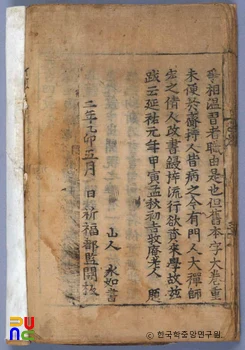 爭相温習者職由是也但舊本字大卷重
未便於齎持人皆病之今有門人大禪師
宏之倩人改書鋟梓流行欲資来學故玆
跋云延祐元年甲寅孟秋初吉牧庵老人 跋
山人 永如書
二年乙卯五月 日祈福都監開板
PUNC
한국학중앙연구원